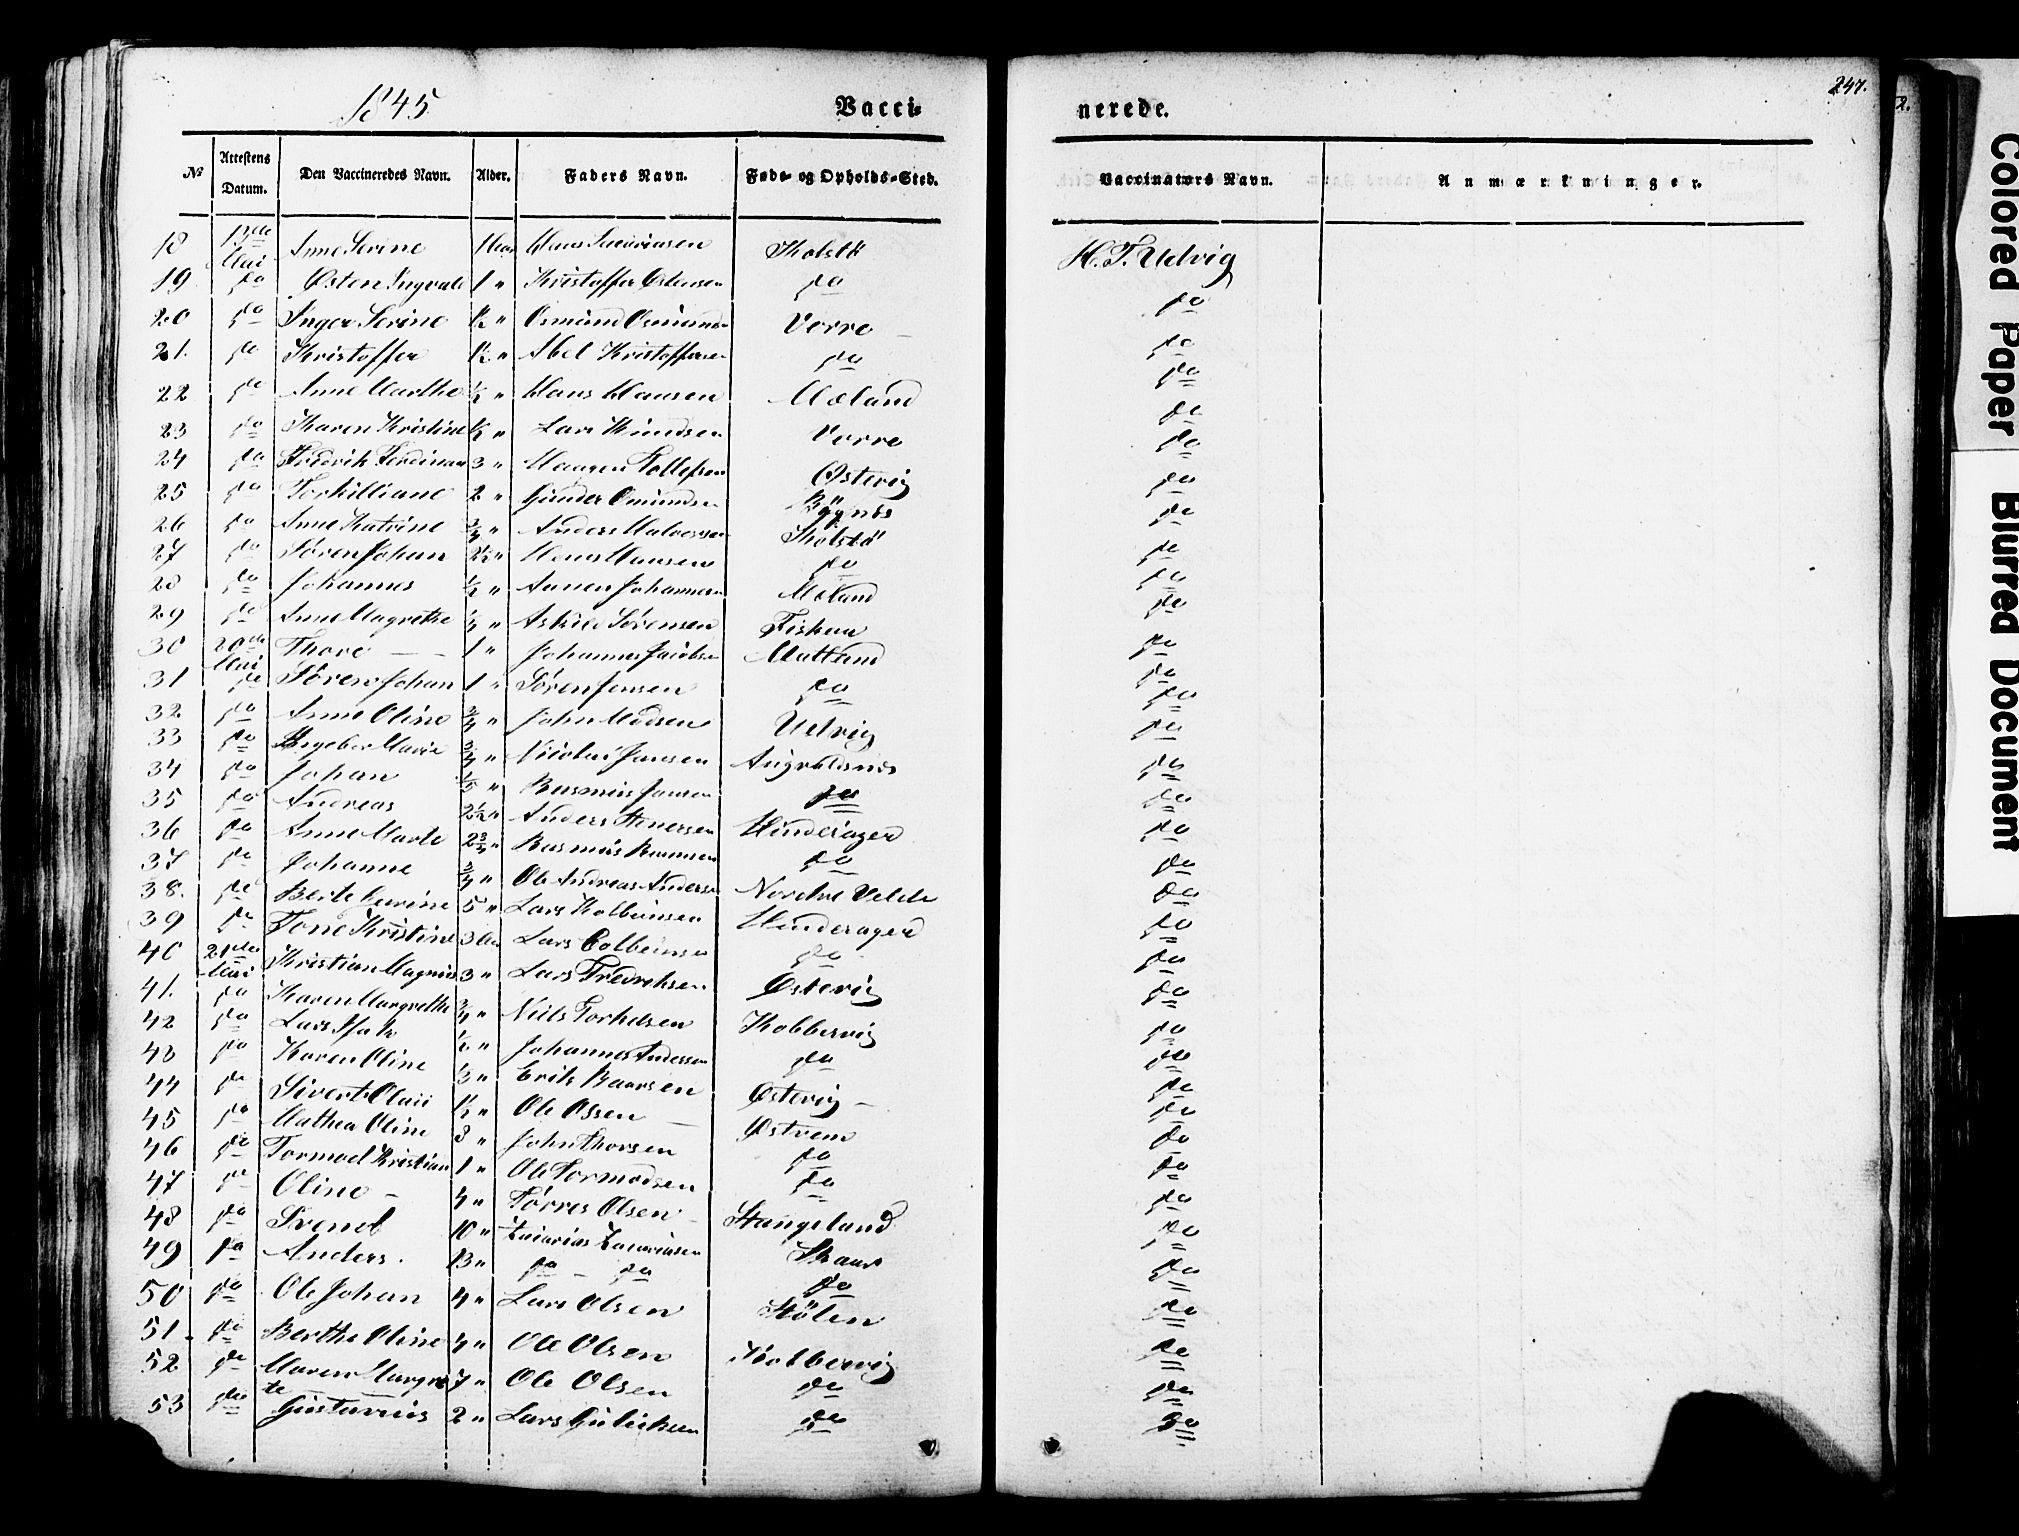 1845
Vacci-
nerede.
247.
2.
No Attestens Datum. Den Vaccineredes Navn. Alder. Faders Navn. Føde- og Opholds-Sted. Vaccinators Navn. Anmærkninger.
18 13de Mai Anne Serine 1 Hans Kolstø H. T. Udvig
19 do Østen Ingvald 1 " Kristoffer Østensen do do
20 do Inger Serine ½ " Osmund Vorre do
21. do Kristoffer ½ " Abel Kristoffersen do do
22 do Anne Marthe " Hans Hansen do
23 do Karen Kristine ½ " Lars Knudsen Vorre do
24 do Fredrik Ferdinan 3 " Mangen Tollefsen Østevig do
25 do Torkilliane 2 " Gunder Omundsen Bøgnes do
26 do Anne Katrine ¾ " Anders Halvorsen Kolstø do
27 do Søren Johan 2½ " Hans Hansen do do
28 do Johannes ½ " Johannesen do
29 do Anne Magrethe " Askild Sørensen Fiskaa do
30 20de Mai Thore 1 " Johannes Jacobsen do
31 do Søren Johan 1 " Søren Jensen do do
32 do Anne Oline ¾ " John Madsen Udvig do
33 do Ingeber Marie ¾ " Nicolai Jansen Augvaldsnes do
34 do Johan " Rasmus Jansen do do
35 do Andreas 2½ " Anders Stenersen Hinderager do
36 do Anne Marte 2¾ " Rasmus do do
37 do Johanne ¾ " Ole Andreas Andersen Nordre Velde do
38. do Berte 5 " Lars Kolbeinsen Hinderager do
39 do Tone Kristine 3 Lars Colbeinsen do do
40 21de Mai Kristian Magnus 3 " Lars Fredriksen Østevig do
41. do Karen Margrethe ¾ " Niels Torkelsen Kobbervig do
42 do Lars Isak ½ " Johannes Andersen do do
43 do Karen Oline " Erik Baarsen Østevig do
44 do Sivert Olaii ½ " Ole Østrem do
45 do Mathea Oline 8 " John Thorsen do do
46 do Tormod Kristian 1 " Ole Tormodsen do do
47 do Oline 4 " Tørres Olsen Stangeland do
48 do Svend 10 " Zacarias Zacariasen Skaar do
49 do Anders. 13 " do do do do
50 do Ole Johan 4 " Lars Olsen Stølen do
51. do Berthe Oline 4 " Ole Olsen Kobbervig do
52 do Maren Margre te 7 " Ole Olsen do do
53 do Gustavius 2 " Lars do do
Colored Paper
Blurred Document